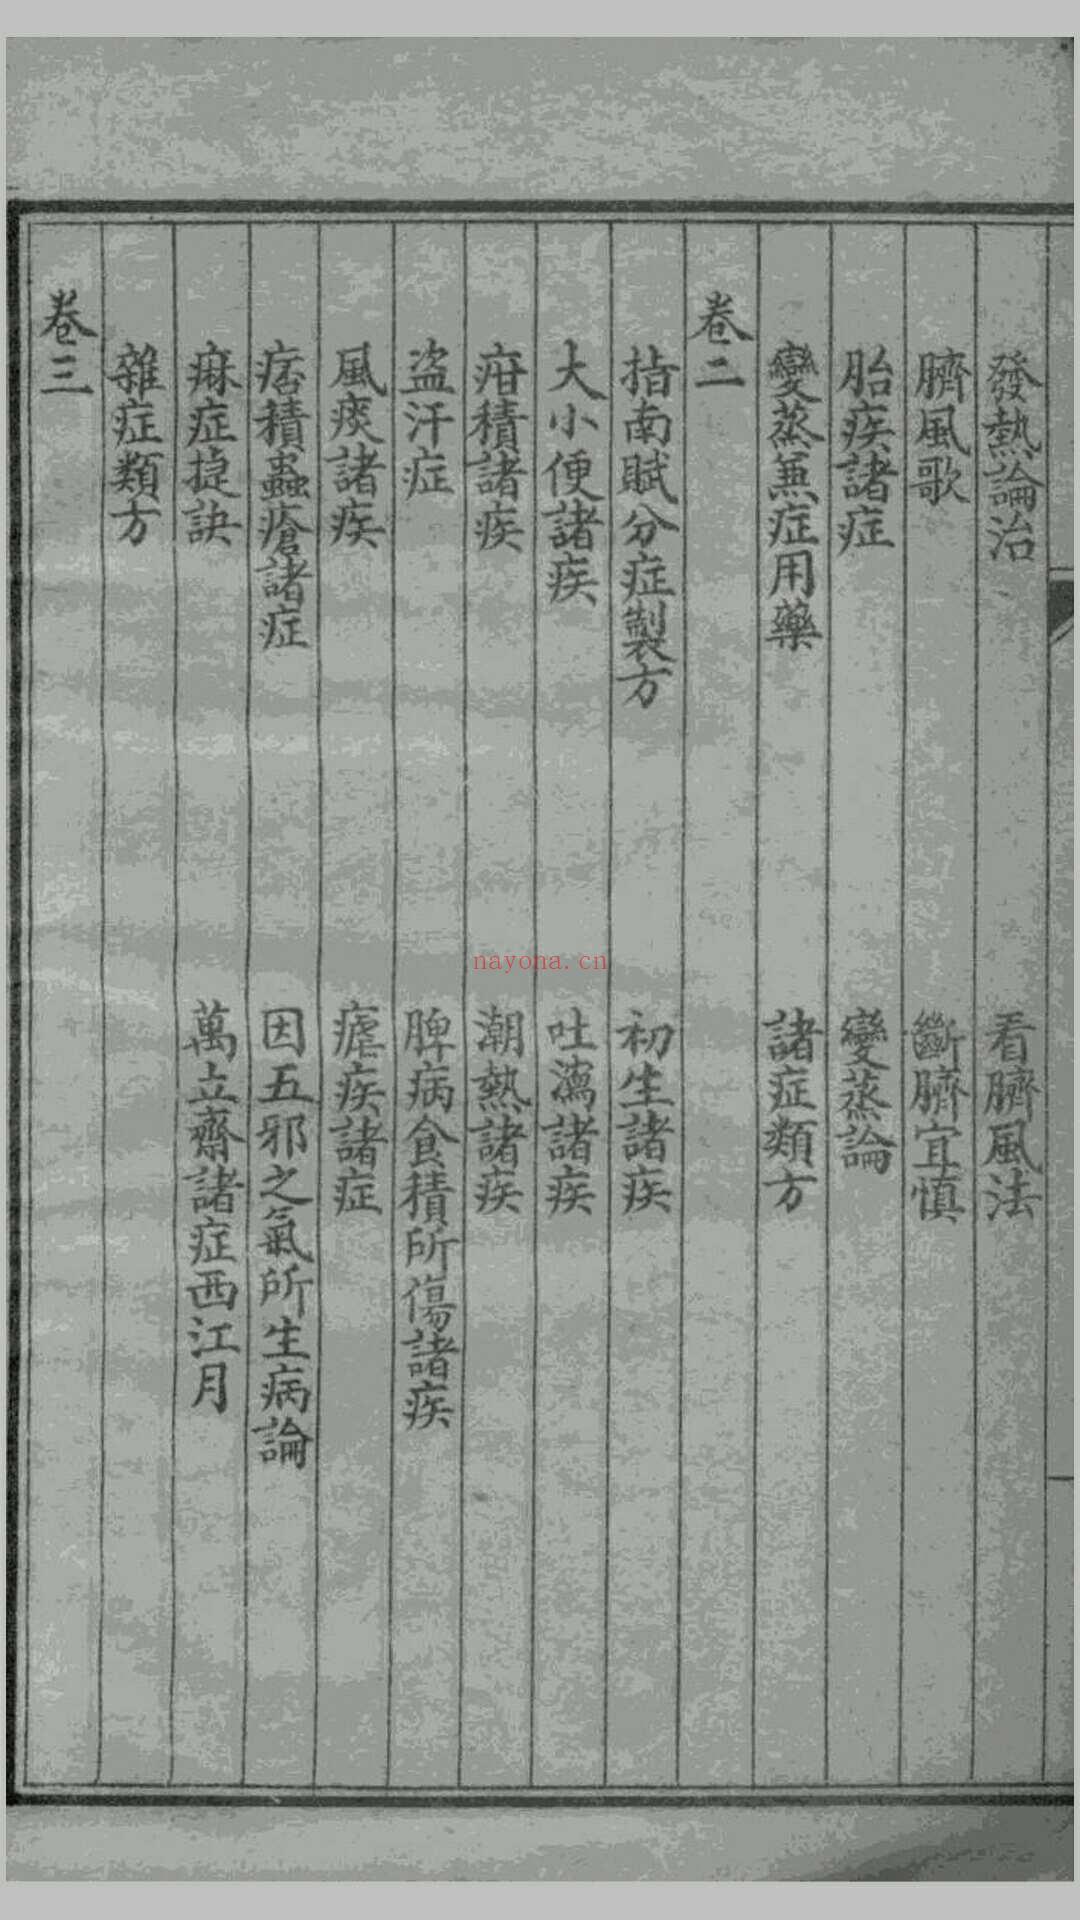 發熱論治　看臍風法
臍風歌　斷臍宜慎
胎疾諸症　變蒸論
變蒸兼症用藥　諸症類方
卷二
指南賦分症製方　初生諸疾
大小便諸疾　吐瀉諸疾
疳積諸疾　潮熱諸疾
盗汗症　脾病食積所傷諸疾
風痰諸疾　瘧疾諸症
痞積蟲瘡諸症　因五邪之氣所生病論
痳症捷訣　萬立齋諸症西江月
雜症類方
卷三
nayona.cn